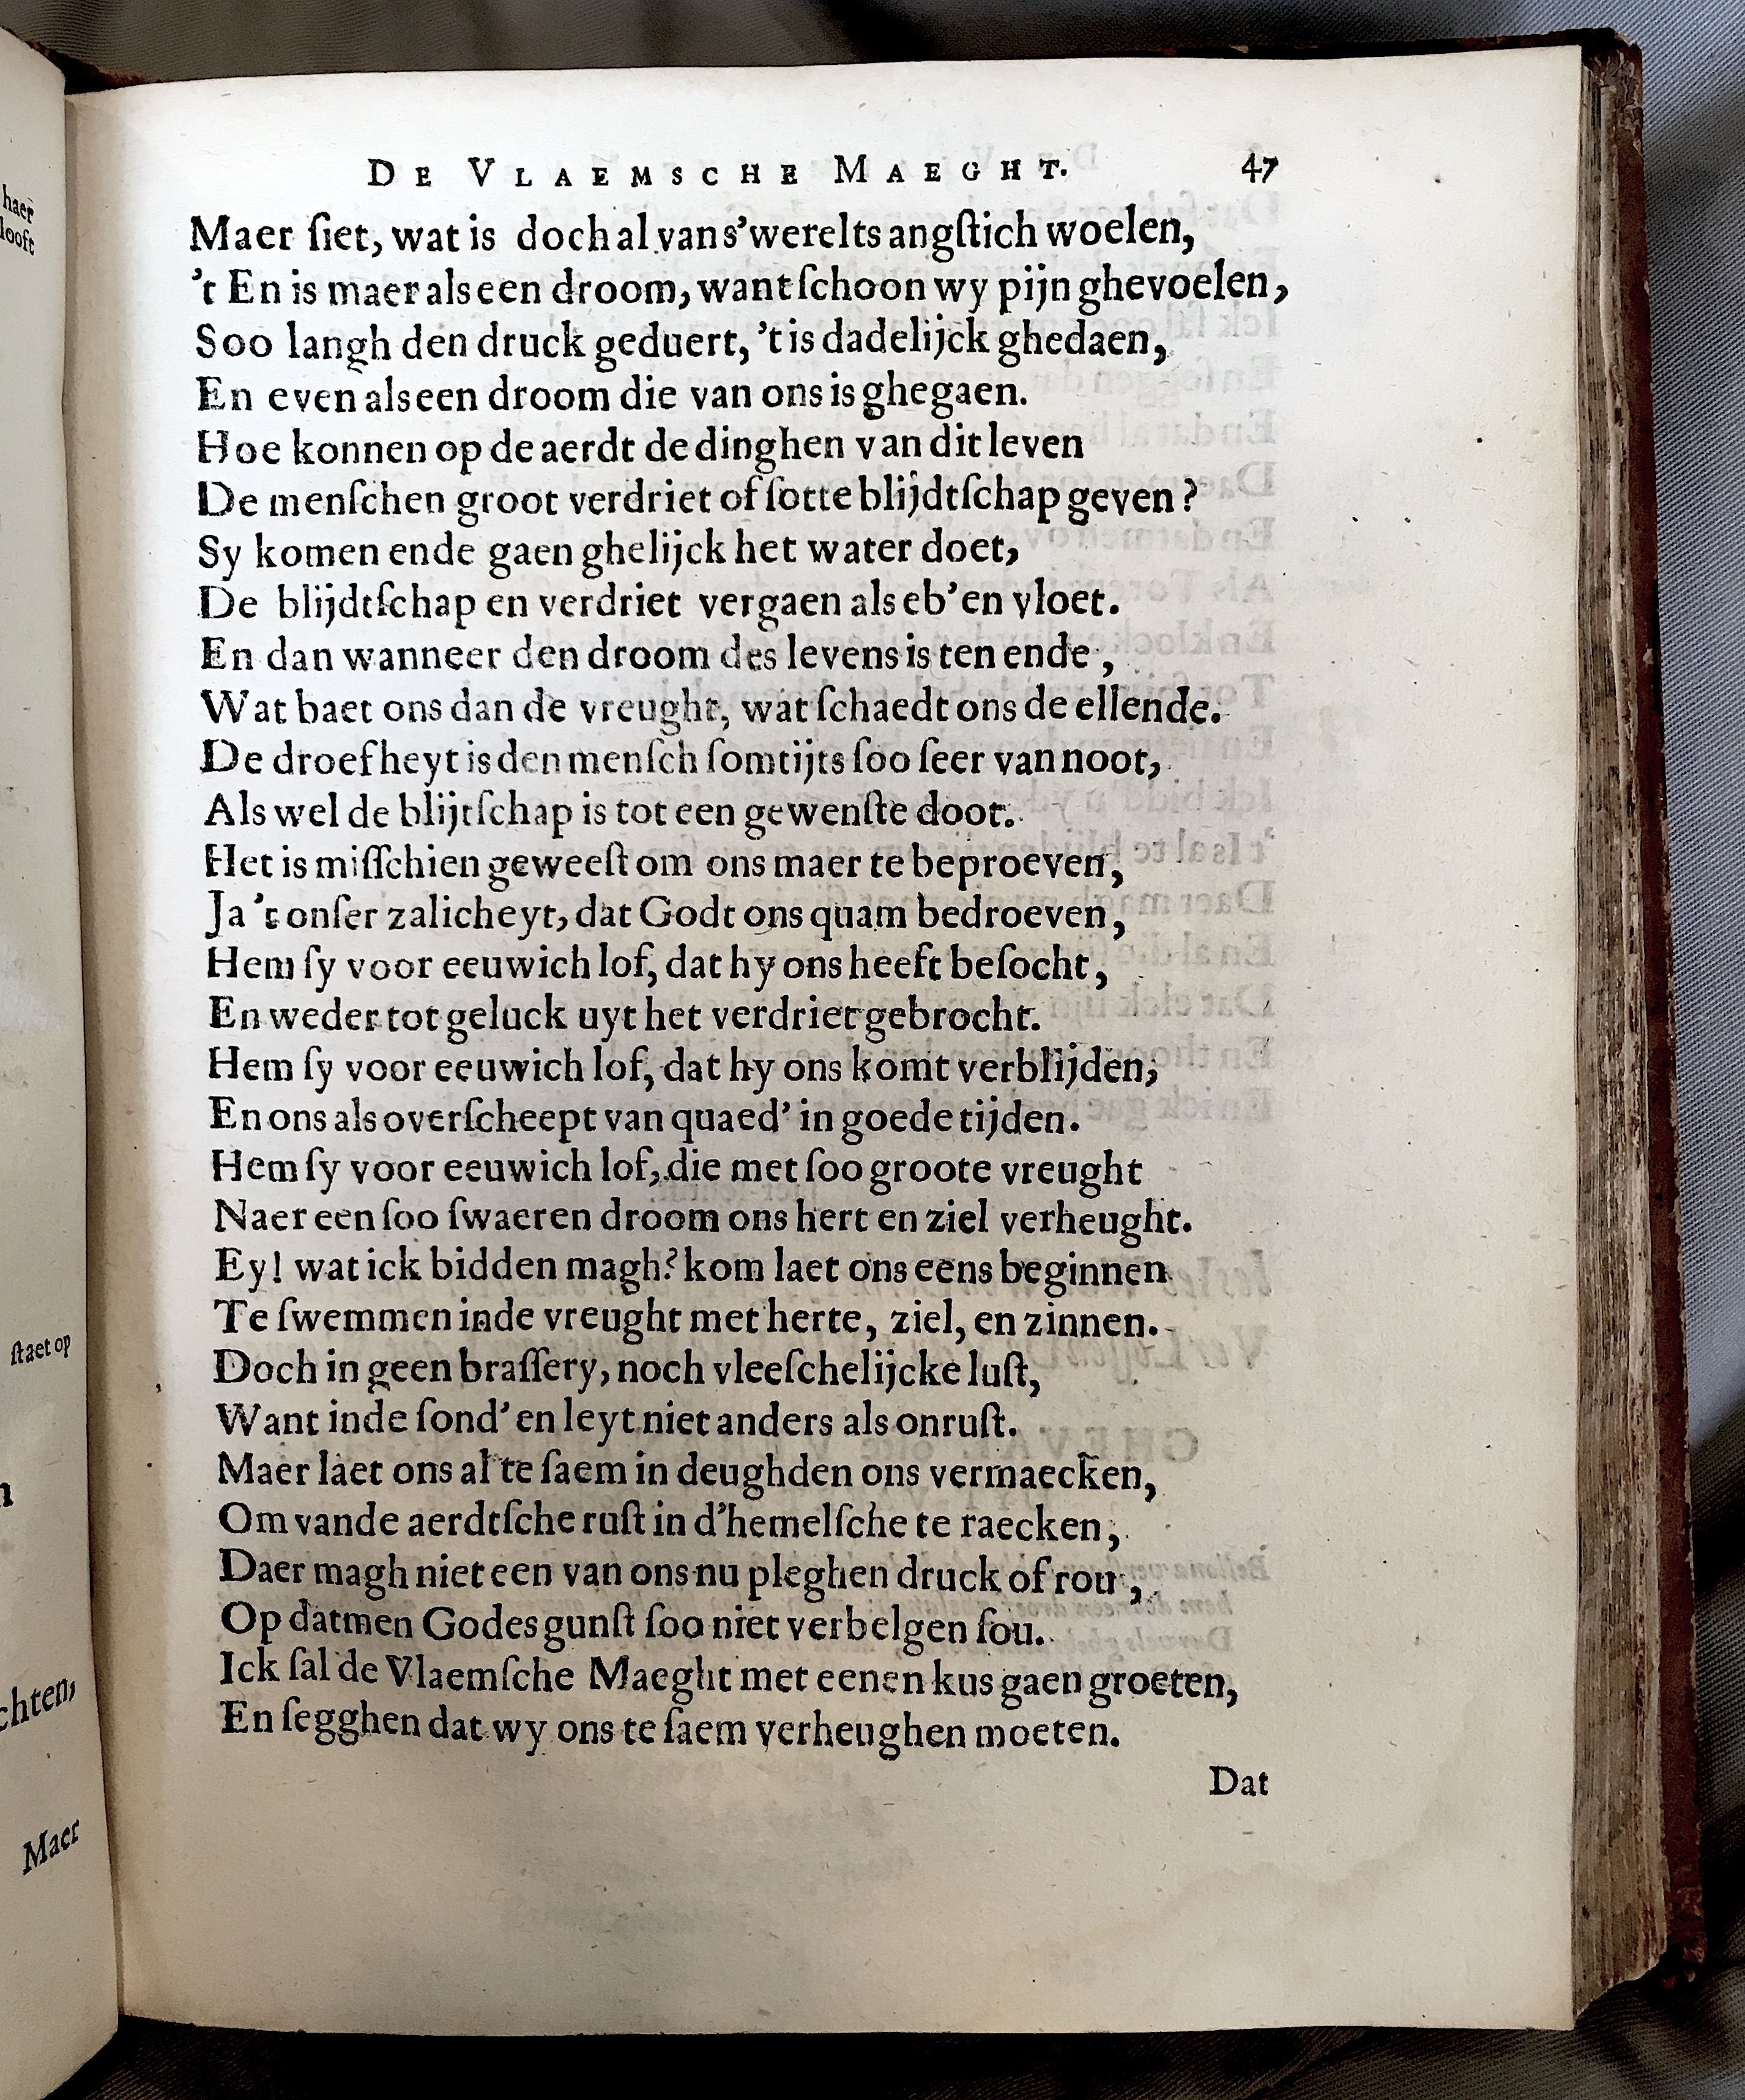 haer
looft
staet op
n
chten,
Maer
DE VLAEMSCHE MAEGHT. 47
Maer ſiet, wat is doch al van s'werelts angſtich woelen,
't En is maer als een droom, want ſchoon wy pijn ghevoelen,
Soo langh den druck geduert, 't is dadelijck ghedaen,
En even als een droom die van ons is ghegaen.
Hoe konnen op de aerdt de dinghen van dit leven
De menſchen groot verdriet of ſotte blijdtſchap geven?
Sy komen ende gaen ghelijck het water doet,
De blijdtſchap en verdriet vergaen als eb' en vloet.
En dan wanneer den droom des levens is ten ende,
Wat baet ons dan de vreught, wat ſchaedt ons de ellende.
De droefheyt is den menſch ſomtijts ſoo ſeer van noot,
Als wel de blijtſchap is tot een gewenſte doot.
Het is miſſchien geweeſt om ons maer te beproeven,
Ja 't onſer zalicheyt, dat Godt ons quam bedroeven,
Hem ſy voor eeuwich lof, dat hy ons heeft beſocht,
En weder tot geluck uyt het verdriet gebrocht.
Hem ſy voor eeuwich lof, dat hy ons komt verblijden;
En ons als overſcheept van quaed' in goede tijden.
Hem ſy voor eeuwich lof, die met ſoo groote vreught
Naer een ſoo ſwaeren droom ons hert en ziel verheught.
Ey! wat ick bidden magh? kom laet ons eens beginnen
Te ſwemmen inde vreught met herte, ziel, en zinnen.
Doch in geen braſſery, noch vleeſchelijcke luſt,
Want inde ſond' en leyt niet anders als onruſt.
Maer laet ons al te ſaem in deughden ons vermaecken,
Om vande aerdtſche ruſt in d'hemelſche te raecken,
Daer magh niet een van ons nu pleghen druck of rou,
Op datmen Godes gunſt ſoo niet verbelgen ſou.
Ick ſal de Vlaemſche Maeght met eenen kus gaen groeten,
En ſegghen dat wy ons te ſaem verheughen moeten.
Dat